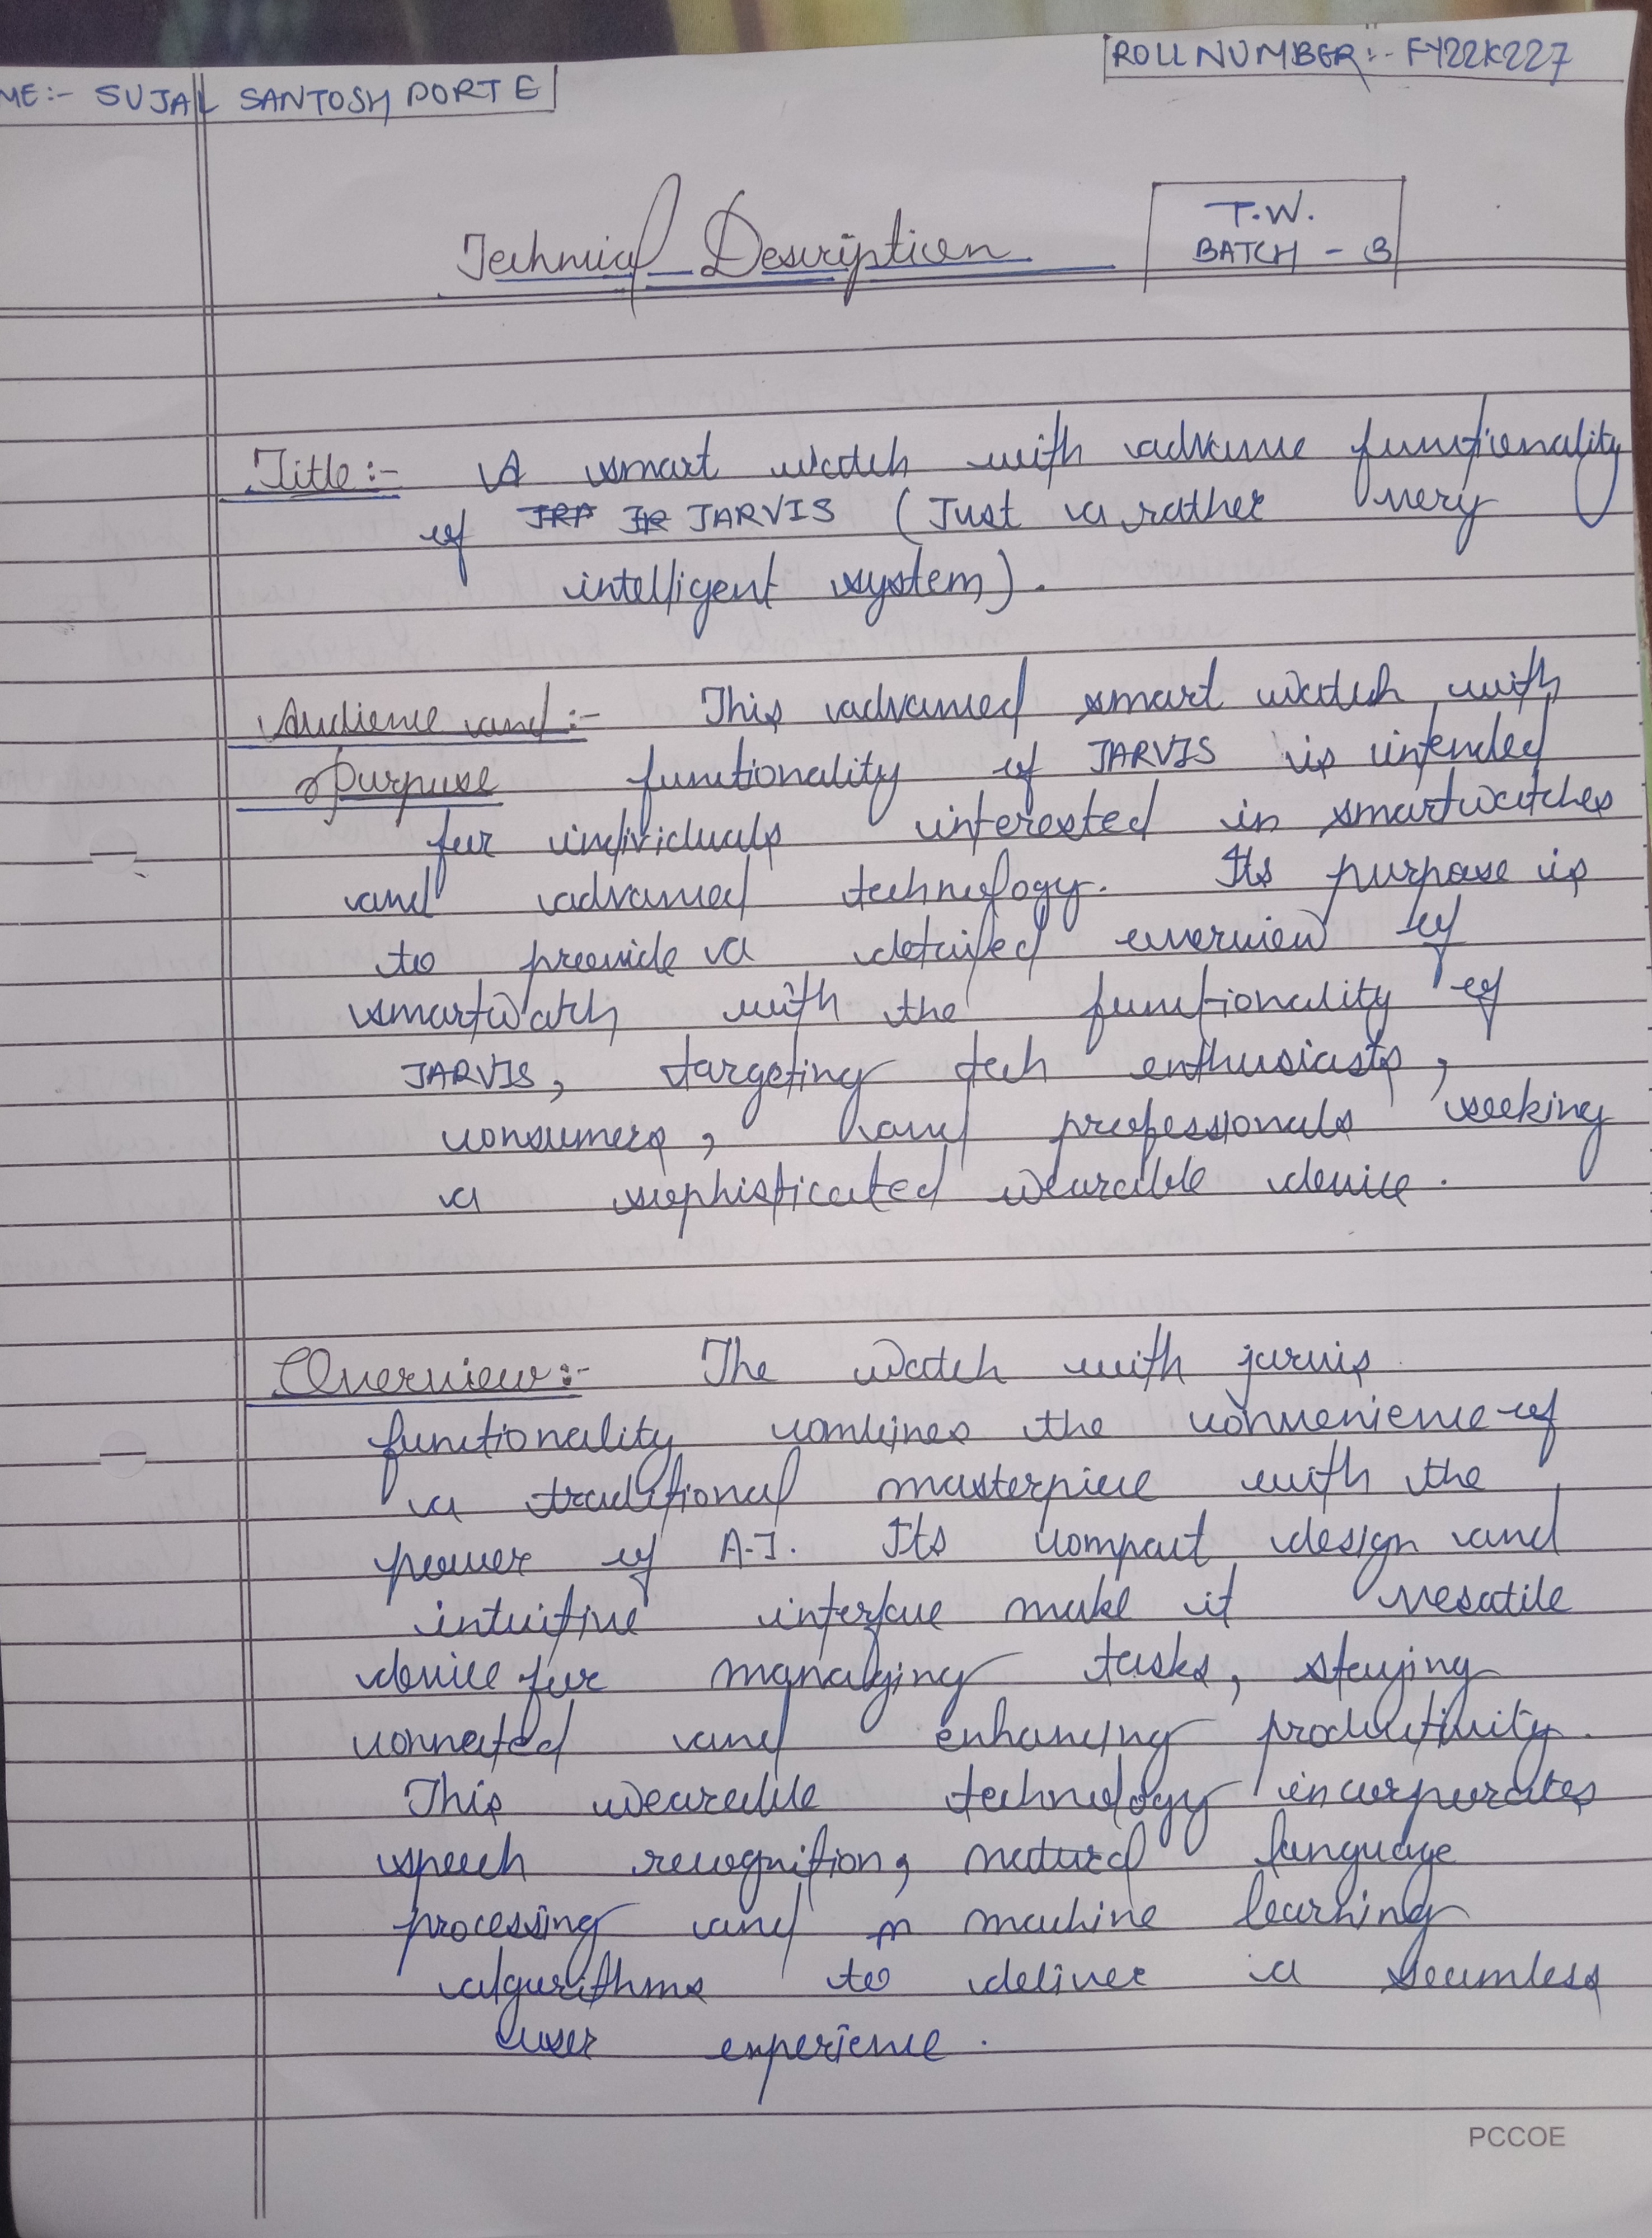 ME:- SUJAL SANTOSH DORTE
ROLL NUMBER:- FY22K227
Technical Description
T.W.
BATCH - B
Title:- A smart watch with advance functionality
of JRA JR JARVIS (Just a rather very
intelligent system).
Audience and:- This advanced smart watch with
Purpose functionality of JARVIS is intended
for individuals interested in smartwatches
and advanced technology. Its purpose is
to provide a detailed overview of
smartwatch with the functionality of
JARVIS, targeting tech enthusiasts,
consumers, and professionals seeking
a sophisticated wearable device.
Overview:- The watch with jarvis
functionality combines the convenience of
a traditional masterpiece with the
power of A.I. Its compact design and
intuitive interface make it vesatile
device for managing tasks, staying
connected and enhancing productivity.
This wearable technology incorporates
speech recognition, natural language
processing and m machine learning
algorithms to deliver a seamless
user experience.
PCCOE